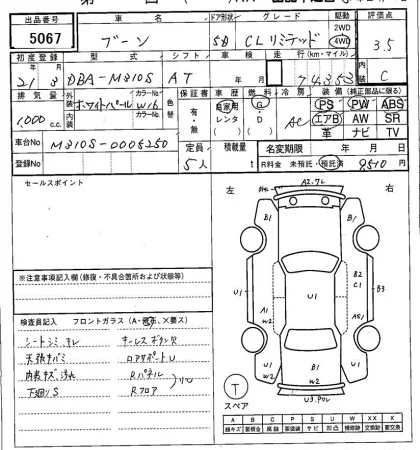 出品番号 車名 ドア形状 グレード 駆動 評価点
5067 ブーン 5D CLリミテッド 2WD 4WD 3.5
初度登録 型式 シフト 車検 走行(km・マイル) 内装
21 3 DBA-M310S AT 年 月 74,353 C
排気量 外装 カラーNo. 色替 保証書 車歴 燃料 冷房 装備(純正部品に限る)
1,000 c.c. ホワイトパール W16 有・無 自家用 レンタ G D AC PS PW ABS
内装 カラーNo. エアB AW SR
革 ナビ TV
車台No. M310S-0005250 定員 積載量 名変期限 年 月 日
登録No. 5人 t R料金 未預託・預託済 9510 円
セールスポイント
左 右
A2.7L
B1 B1
U1 A1 W2 U1 B2 C1 A51 B3
U1 W2 B1 A1 U1 W2
U3.PUL
※注意事項記入欄(修復・不具合箇所および状態等)
検査員記入 フロントガラス(A・飛石、×要ス)
シートシミ キーレスボタン穴
天張キバミ ロアサポートU
内装キズ 汚れ Rパネル
下廻りS Rフロア
T
スペア
A B C P S U W X XX
線キズ 要板金 腐蝕 要塗装 サビ 凹凸 補修跡 要交換 交換済